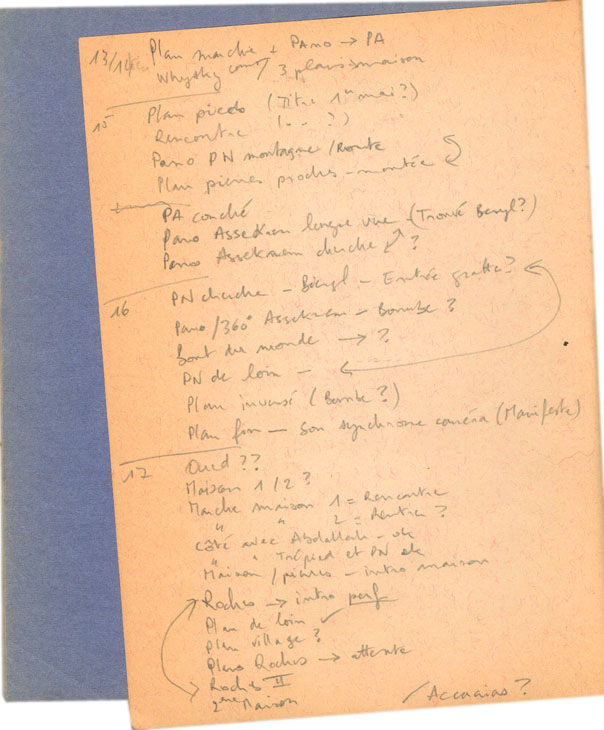 13/14 Plan marche + Pano → PA
Whysky 3 plans maison
15 Plan piedo (Titre 1er mai?)
Rencontre (.. ?)
Pano PN montagne/Route
Plan pierres proches - montée
PA couché
Pano Assekrem longue vue - (Trouvé Beryl?)
Pano Assekrem cherche ?
16 PN cherche - Béryl - Entrée grotte?
Pano/360° Assekrem - Bombe?
Bout du monde → ?
PN de loin -
Plan inversé (Bombe?)
Plan fin - son synchrone caméra (Manifeste)
17 Oued ??
Maison 1/2 ?
Marche maison 1 = Rencontre
" " 2 = Rentrée ?
Côté avec Abdallah - ok
" " Trépied et PN ok
Maison/pierres - intro maison
Roches → intro perf
Plan de loin ✓
Plan village ?
Plano Roches → attente
Roches II
2ème Maison
✓ Accacias ?